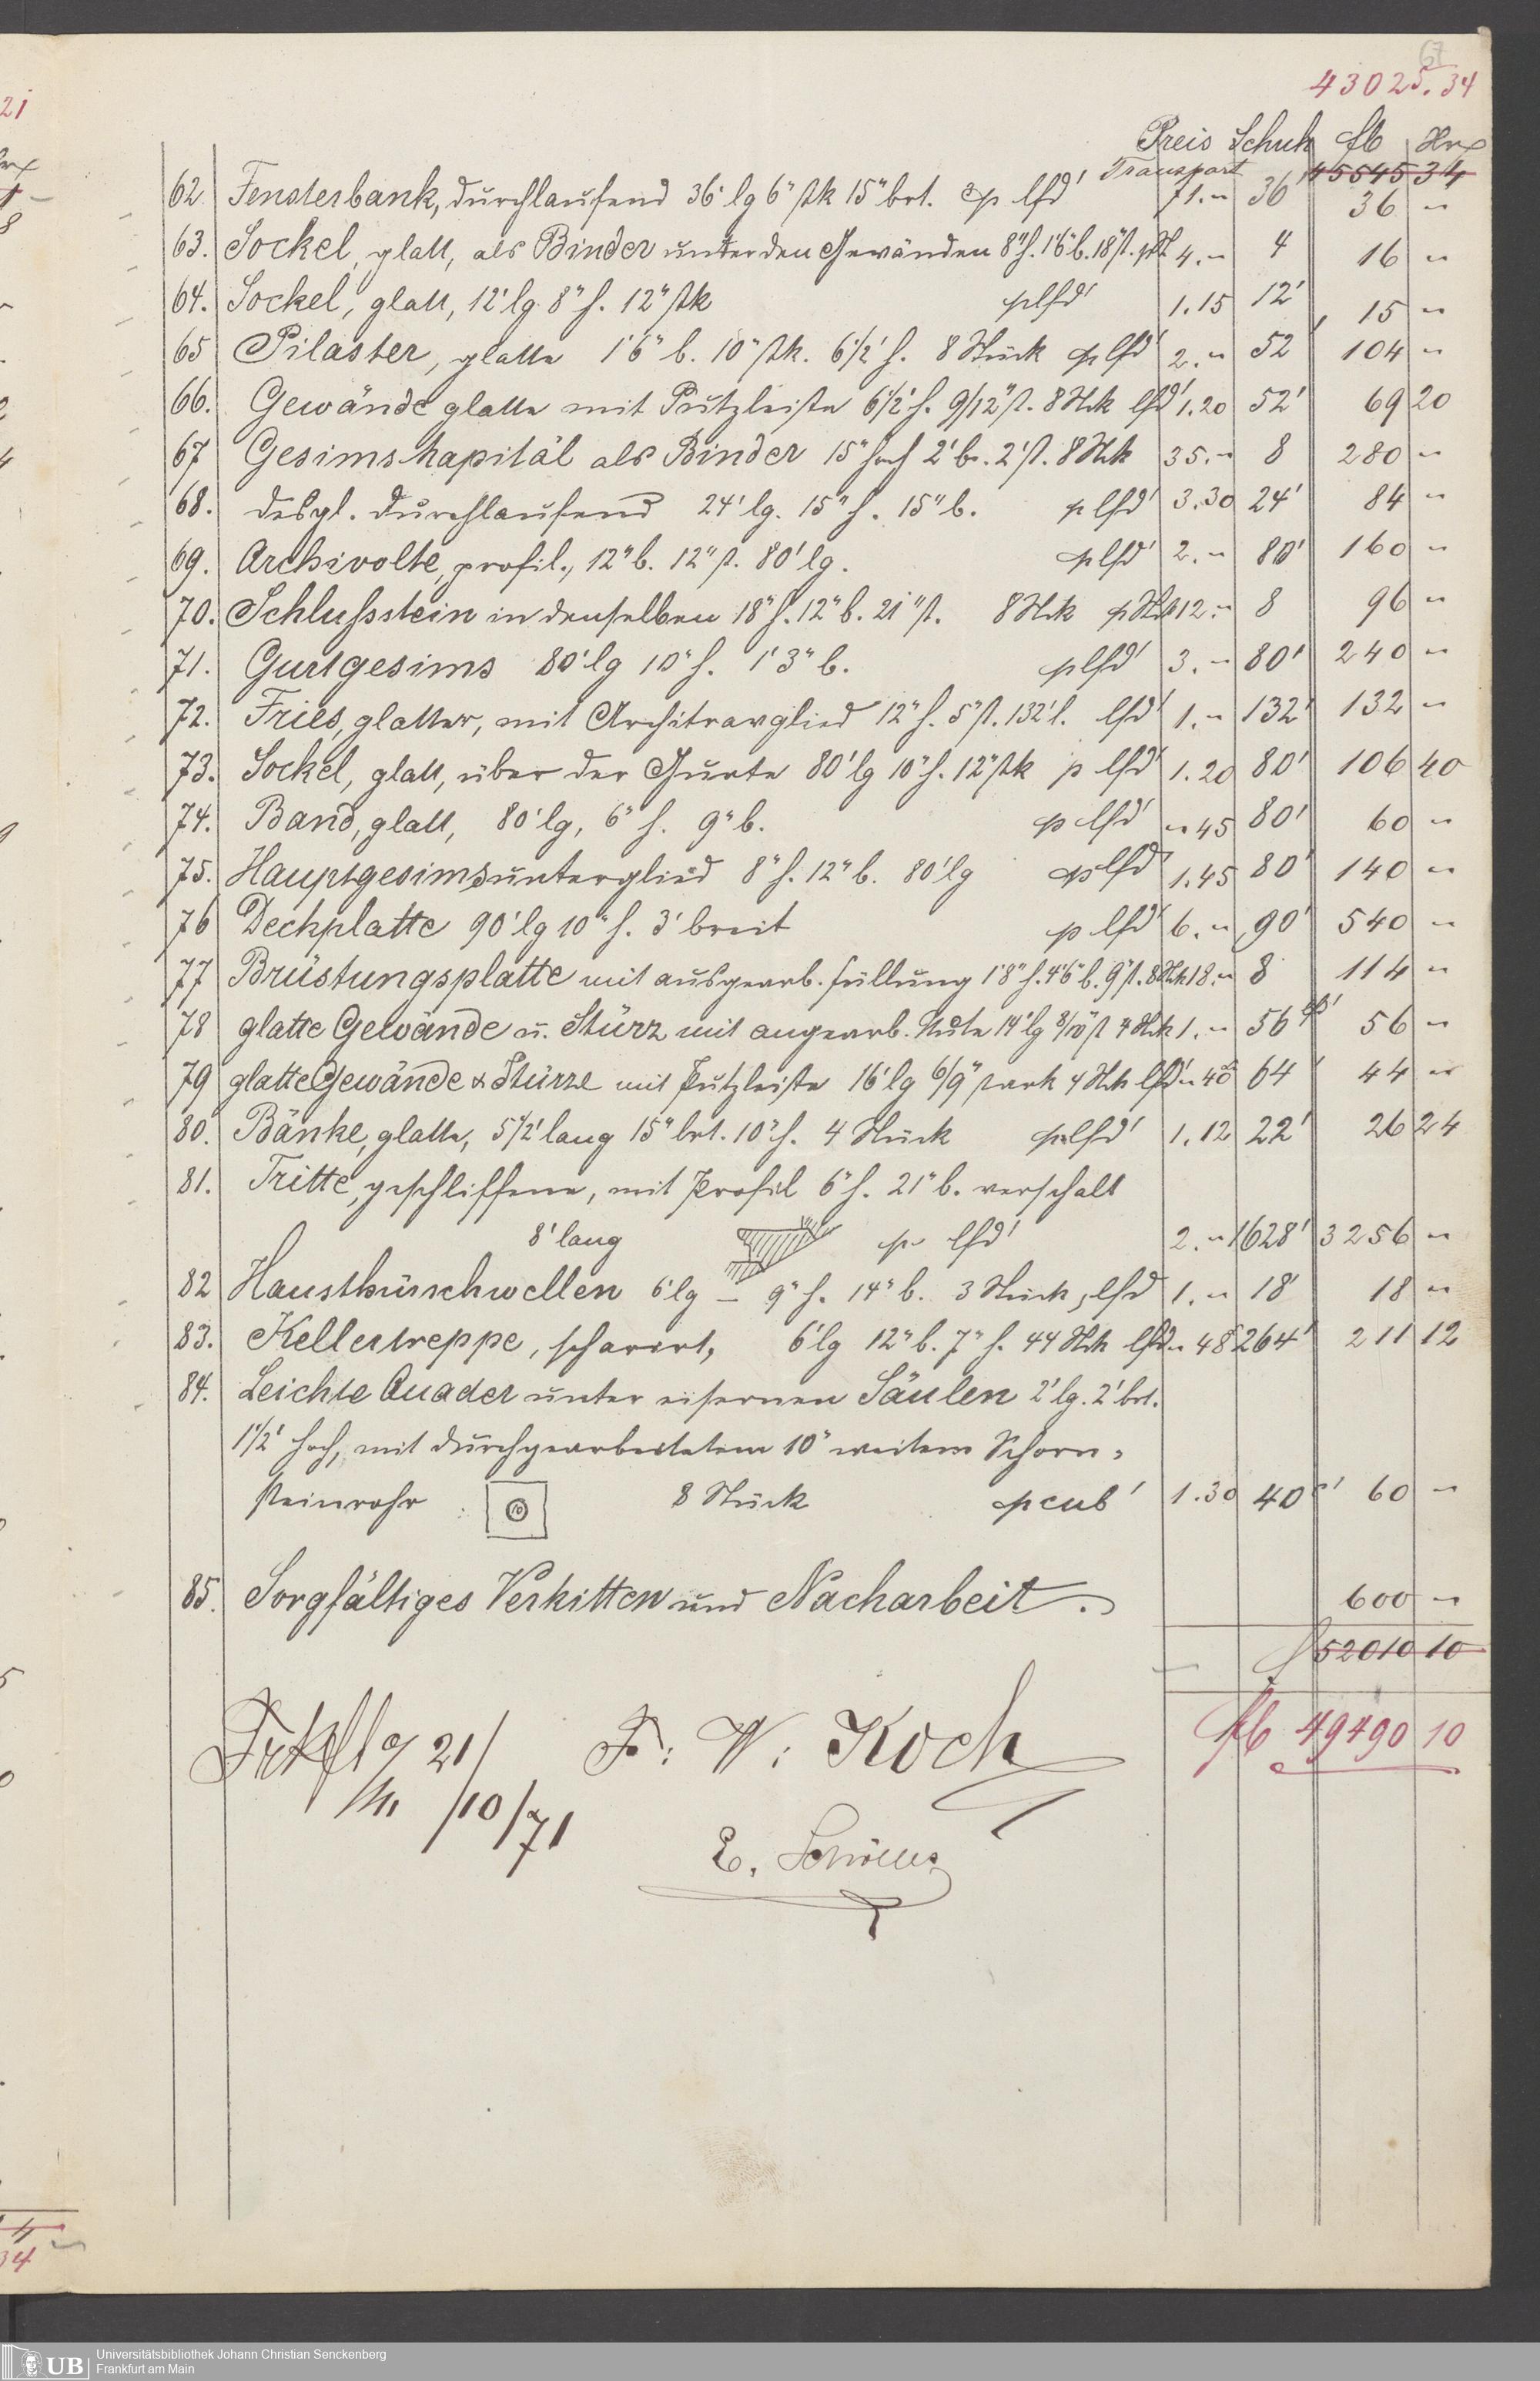 67
43025.34
Preis Schuh fl Krz
Transport 45545 34
62 Fensterbank, durchlaufend 36' lg 6" stk 15" brt. p lfd' 1.– 36' 36 –
63. Sockel, glatt, als Binder unter den Gewänden 8" h. 1'6" b. 18" st. pSt 4.– 4 16 –
64. Sockel, glatt, 12' lg. 8" h. 12" stk p lfd' 1.15 12' 15 –
65 Pilaster, glatte 1'6" b. 10" stk. 6½' h. 8 Stück p lfd' 2.– 52 104 –
66. Gewände glatte mit Putzleiste 6½' h. 9/12" st. 8 Stk lfd' 1.20 52' 69 20
67 Gesimskapitäl als Binder 15" hoch 2' br. 2' st. 8 Stk 35.– 8 280 –
68. desgl. durchlaufend 24' lg. 15" h. 15" b. p lfd' 3.30 24' 84 –
69. Archivolte, profil., 12" b. 12" st. 80' lg. p lfd' 2.– 80' 160 –
70. Schlußstein in denselben 18" h. 12" b. 21" st. 8 Stk p Stk 12.– 8 96 –
71. Gurtgesims 80' lg 10" h. 1'3" b. p lfd' 3.– 80' 240 –
72. Fries, glatter, mit Architravglied 12" h. 5" st. 132' l. lfd' 1.– 132' 132 –
73. Sockel, glatt, über der Gurte 80' lg 10" h. 12" stk p lfd' 1.20 80' 106 40
74. Band, glatt, 80' lg, 6" h. 9" b. p lfd' – 45 80' 60 –
75. Hauptgesimsunterglied 8" h. 12" b. 80' lg p lfd' 1.45 80' 140 –
76 Deckplatte 90' lg 10" h. 3' breit p lfd' 6.– 90' 540 –
77 Brüstungsplatte mit ausgearb. Füllung 1'8" h. 4'6" b. 9" st. 8 Stk 18.– 8 114 –
78 glatte Gewände u. Stürz mit angearb. Nute 14' lg 8/10" st 4 Stk 1.– 56 56 –
79 glatte Gewände & Stürze mit Putzleiste 16' lg 6/9" stark 4 Stk lfd' – 40 64' 44 –
80. Bänke, glatte, 5½' lang 15" brt. 10" h. 4 Stück p lfd' 1.12 22' 26 24
81. Tritte, geschliffene, mit Profil 6" h. 21" b. verschalt
8' lang p lfd' 2.– 1628' 3256 –
82 Hausthürschwellen 6' lg – 9" h. 14" b. 3 Stück, lfd 1.– 18' 18 –
83. Kellertreppe, scharirt, 6' lg 12" b. 7" h. 44 Stk lfd – 48 264' 211 12
84. Leichte Quader unter eisernen Säulen 2' lg. 2' brt.
1½' hoch, mit durchgearbeitetem 10" weitem Schorn-
steinrohr 10 8 Stück p cub' 1.30 40 c' 60 –
85. Sorgfältiges Verkitten und Nacharbeit. 600 –
f 52010 10
fl 49490 10
Frkft a/M 21/10/71 F. W. Koch
Universitätsbibliothek Johann Christian Senckenberg
Frankfurt am Main
UB